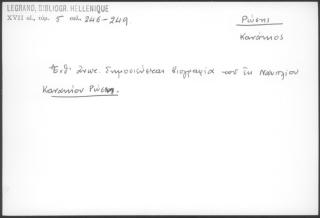 LEGRAND, BIBLIOGR. HELLENIQUE
XVII αἰ., τόμ. 5 σελ. 246-249
Ρώσης
Κανάκιος
Ἔνθ' ἄνωτ. δημοσιεύεται βιογραφία τοῦ ἐκ Ναυπλίου
Κανακίου Ρώση.